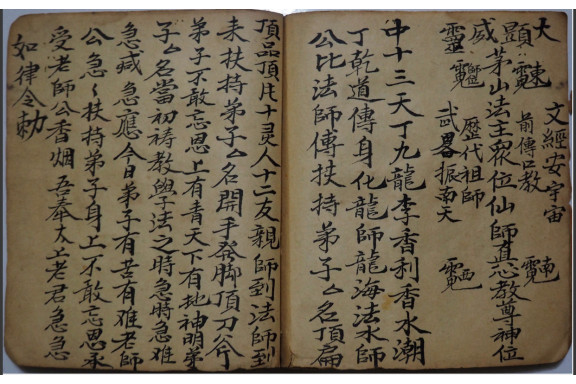 大顯威靈
文經安宇宙
前傳口教
茅山法主眾位仙師直心教尊神位
歷代祖師
武畧振南天
中十三天丁九龍李香利香水潮
丁乾道傳身化龍師龍海法水師
公比法師傳扶持弟子厶名頂扁
頂品頂爿十灵人十二友親師到法師到
来扶持弟子厶名開手發脚頂刀斧
弟子不敢忘恩上有青天下有地神明弟
子厶名當初祷教學法之時急時急难
急喊急應今日弟子有苦有难老師
公急〻扶持弟子身上不敢忘恩永
受老師公香烟 吾奉太上老君急急
如律令勅